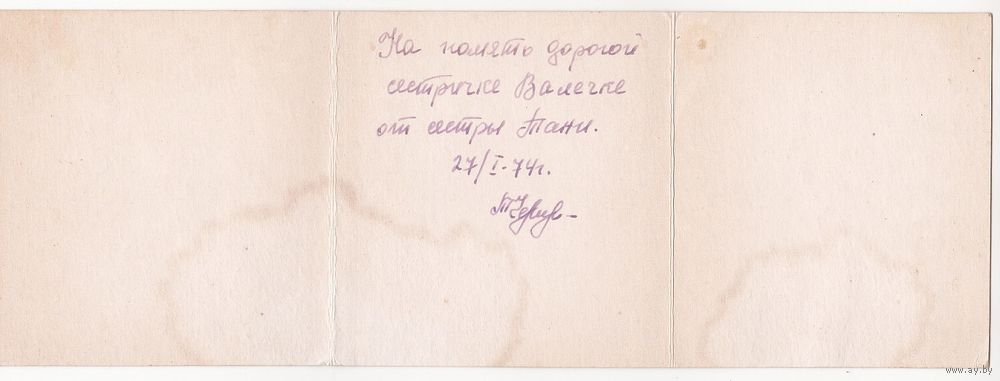 На помять дорогой
сестричке Валечке
от сестры Тани.
27/I-74г.
www.ay.by